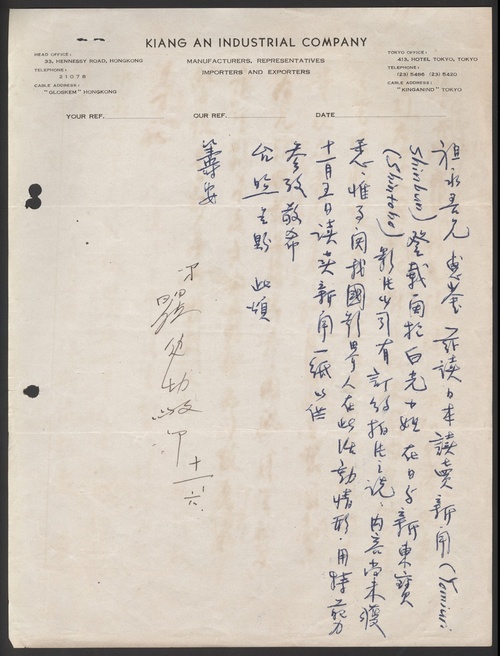 KIANG AN INDUSTRIAL COMPANY
MANUFACTURERS, REPRESENTATIVES
IMPORTERS AND EXPORTERS
HEAD OFFICE:
33, HENNESSY ROAD, HONGKONG
TELEPHONE:
21078
CABLE ADDRESS:
"GLOBKEM" HONGKONG
TOKYO OFFICE:
413, HOTEL TOKYO, TOKYO
TELEPHONE:
(23) 5486 (23) 5420
CABLE ADDRESS:
"KINGANIND" TOKYO
YOUR REF.
OUR REF.
DATE
祖永吾兄 惠鑒 茲讀日本讀賣新聞(Yomiuri
Shinbun) 登載關於白光小姐在日与新東寶
(Shintoho) 影片公司有訂約拍片之說 內容尚未獲
悉 惟事關我國影界人在此活動情形 用特剪
十一月五日讀賣新聞一紙以供
參攷 敬希
台照
籌安
十一 六